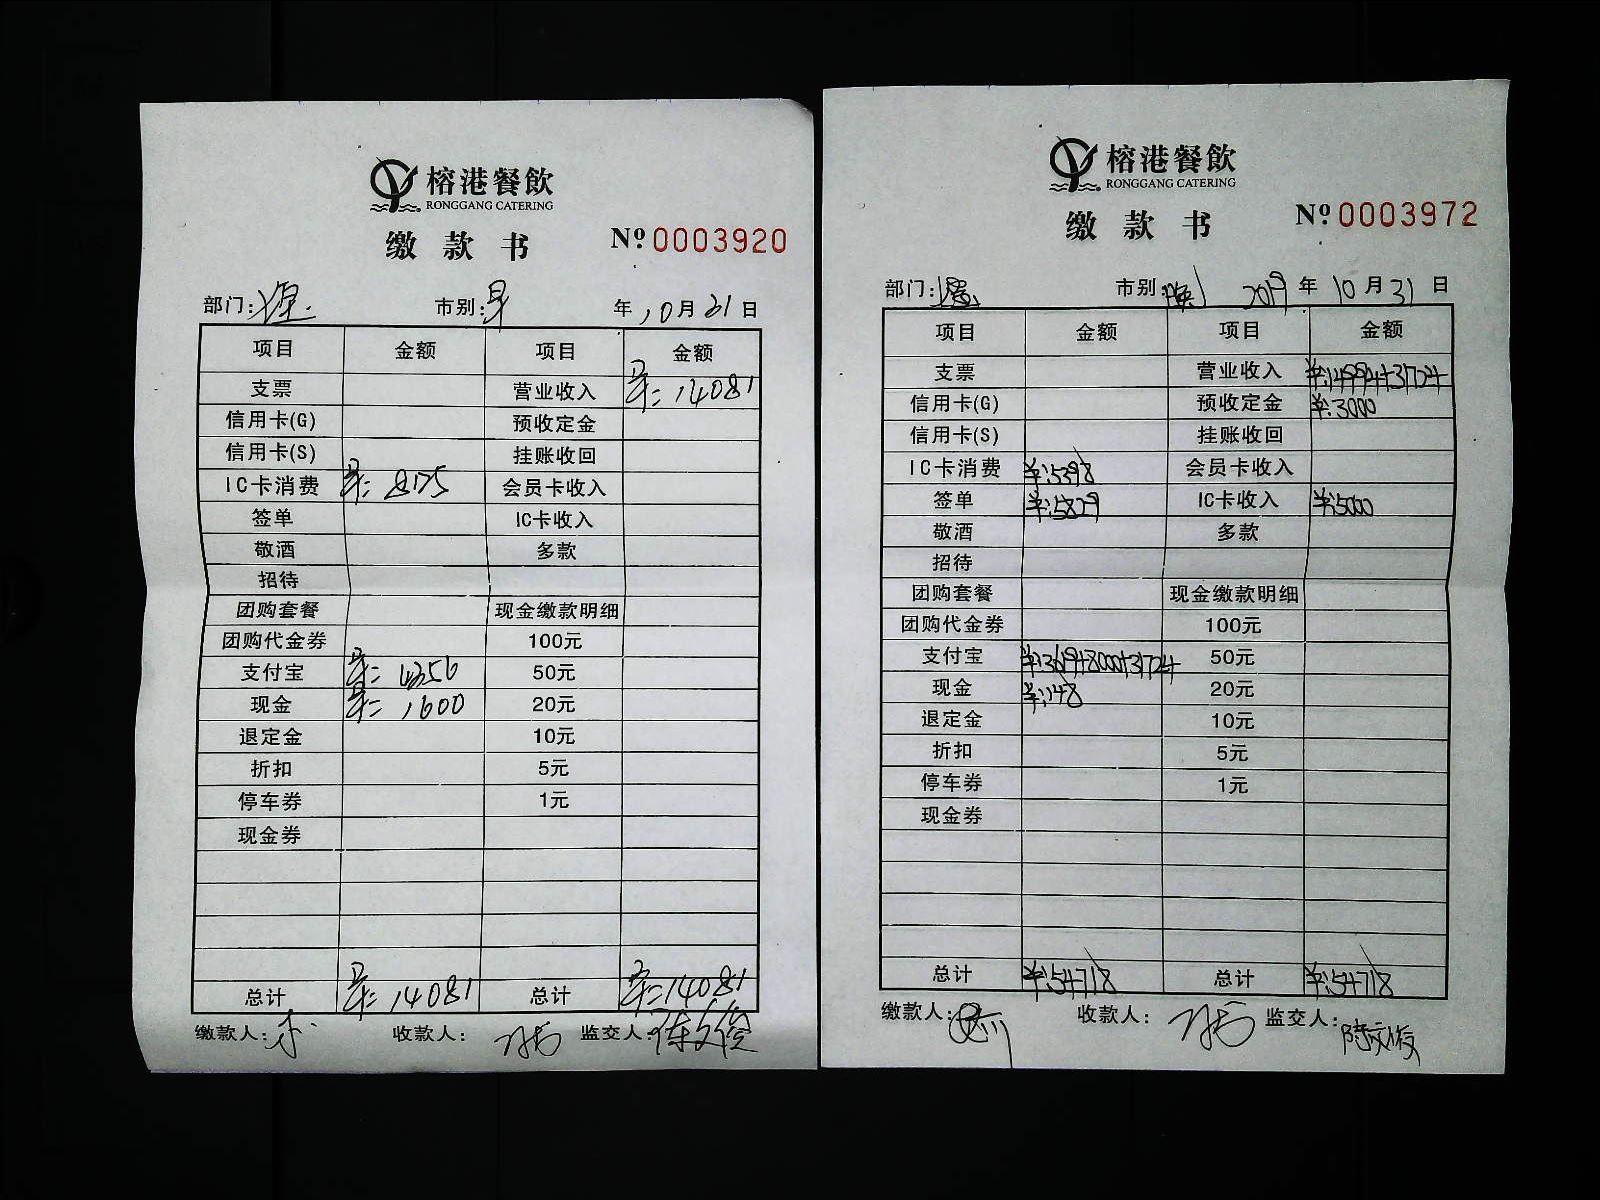 榕港餐飲
RONGGANG CATERING
缴款书
Nº 0003920
部门: 市别:早 年10月31日
项目 金额 项目 金额
支票 营业收入 14081
信用卡(G) 预收定金
信用卡(S) 挂账收回
IC卡消费 8175 会员卡收入
签单 IC卡收入
敬酒 多款
招待
团购套餐 现金缴款明细
团购代金券 100元
支付宝 50元
现金 1600 20元
退定金 10元
折扣 5元
停车券 1元
现金券
总计 14081 总计 14081
缴款人: 收款人: 监交人:
榕港餐飲
RONGGANG CATERING
缴款书
Nº 0003972
部门: 市别: 2019年10月31日
项目 金额 项目 金额
支票 营业收入 ¥:14994+31724
信用卡(G) 预收定金 ¥:3000
信用卡(S) 挂账收回
IC卡消费 ¥:5398 会员卡收入
签单 ¥:5829 IC卡收入 ¥:5000
敬酒 多款
招待
团购套餐 现金缴款明细
团购代金券 100元
支付宝 ¥:3619+8000+31724 50元
现金 ¥:148 20元
退定金 10元
折扣 5元
停车券 1元
现金券
总计 ¥:54718 总计 ¥:54718
缴款人: 收款人: 监交人: